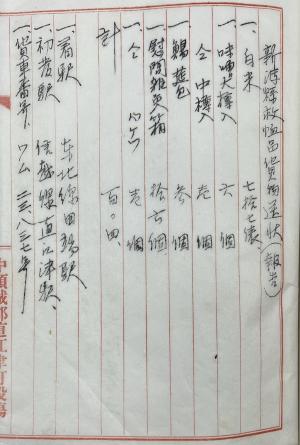 新潟縣救恤品貨物送状(報告)
一、白米 七拾七俵
一、味噌大樽入 六個
一、仝 中樽入 壱個
一、鰛叺包 参個
一、慰問雑貨箱 拾七個
一、仝 壱個
計 百〇四
一、着駅 東北線田端駅
一、初発駅 信越線直江津駅
一、貨車番号 ワム 二三、三七七
中頸城郡直江津町役場